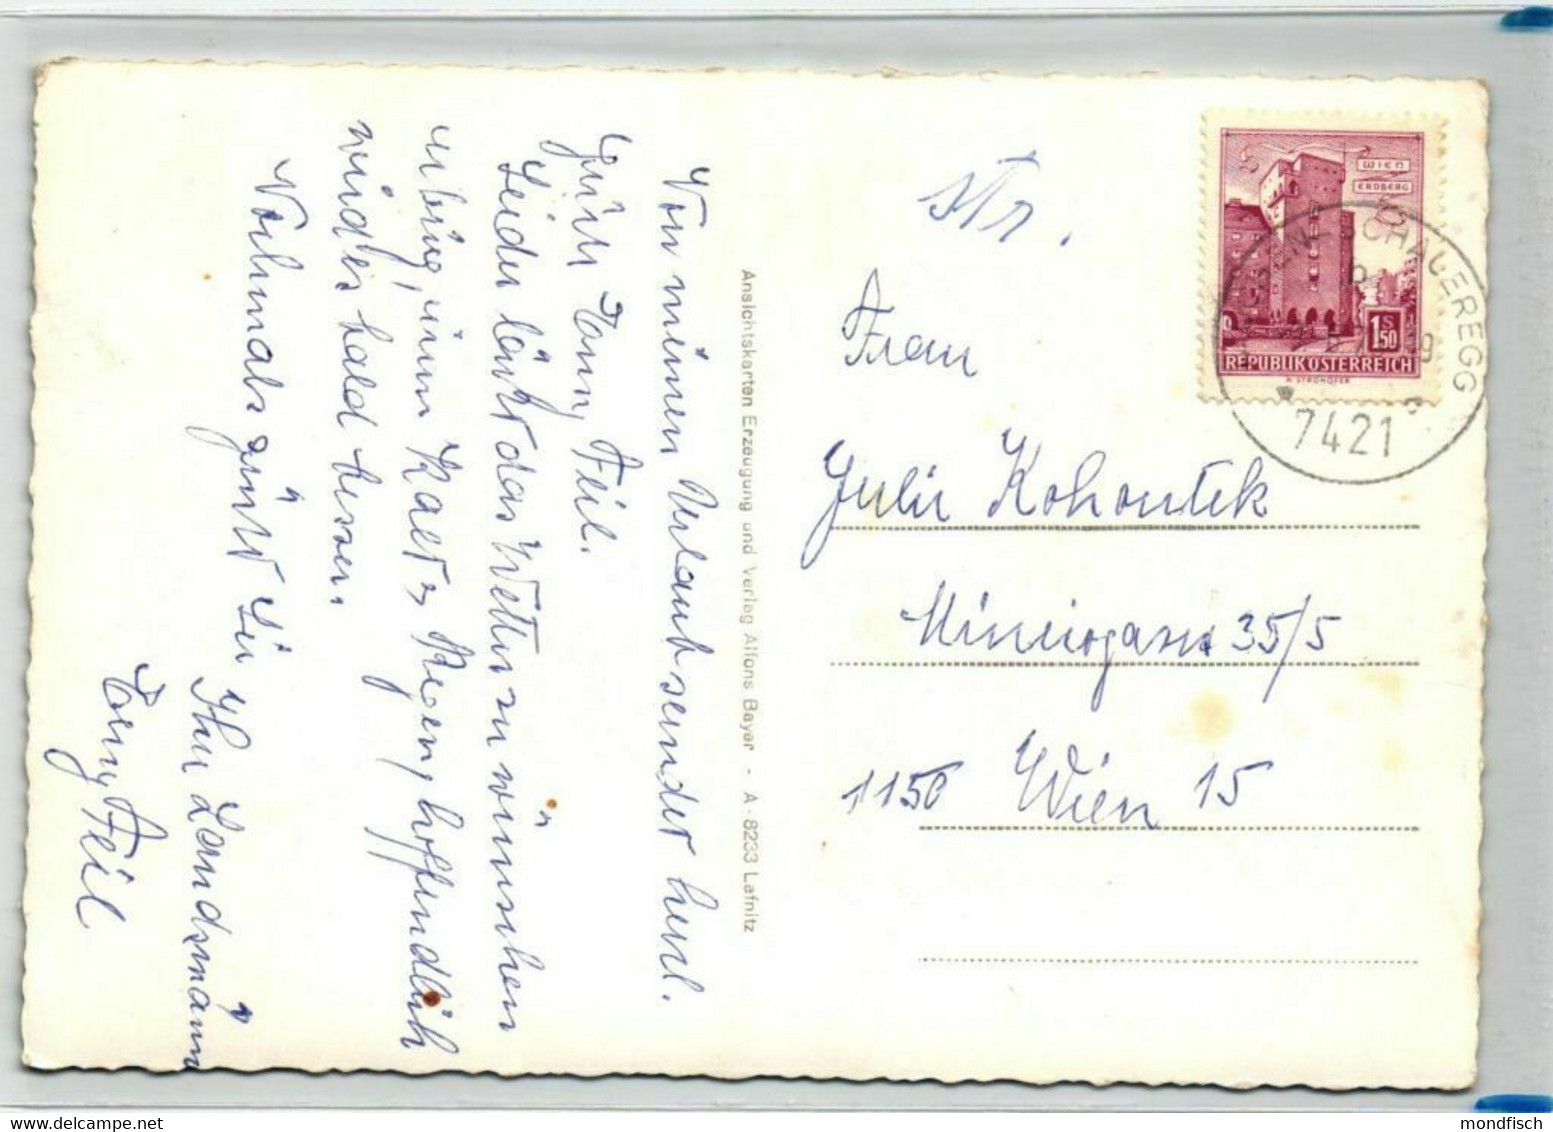 Von meinen Urlaub sendet herzl.
Grüße Tony Feil.
Leider läßt das Wetter zu wünschen
übrig, immer Kalt u Regen, hoffendlich
wird es bald besser.
Nochmals grüßt Sie
Ihr Landsmann
Tony Feil
Ansichtskarten Erzeugung und Verlag Alfons Bayer - A-8233 Lafnitz
WIEN
ERDBERG
1 S 50
REPUBLIK ÖSTERREICH
H. STROHOFER
SCHAUEREGG
7421
Str.
Frau
Julie Kohoutek
35/5
1150 Wien 15
mondfisch